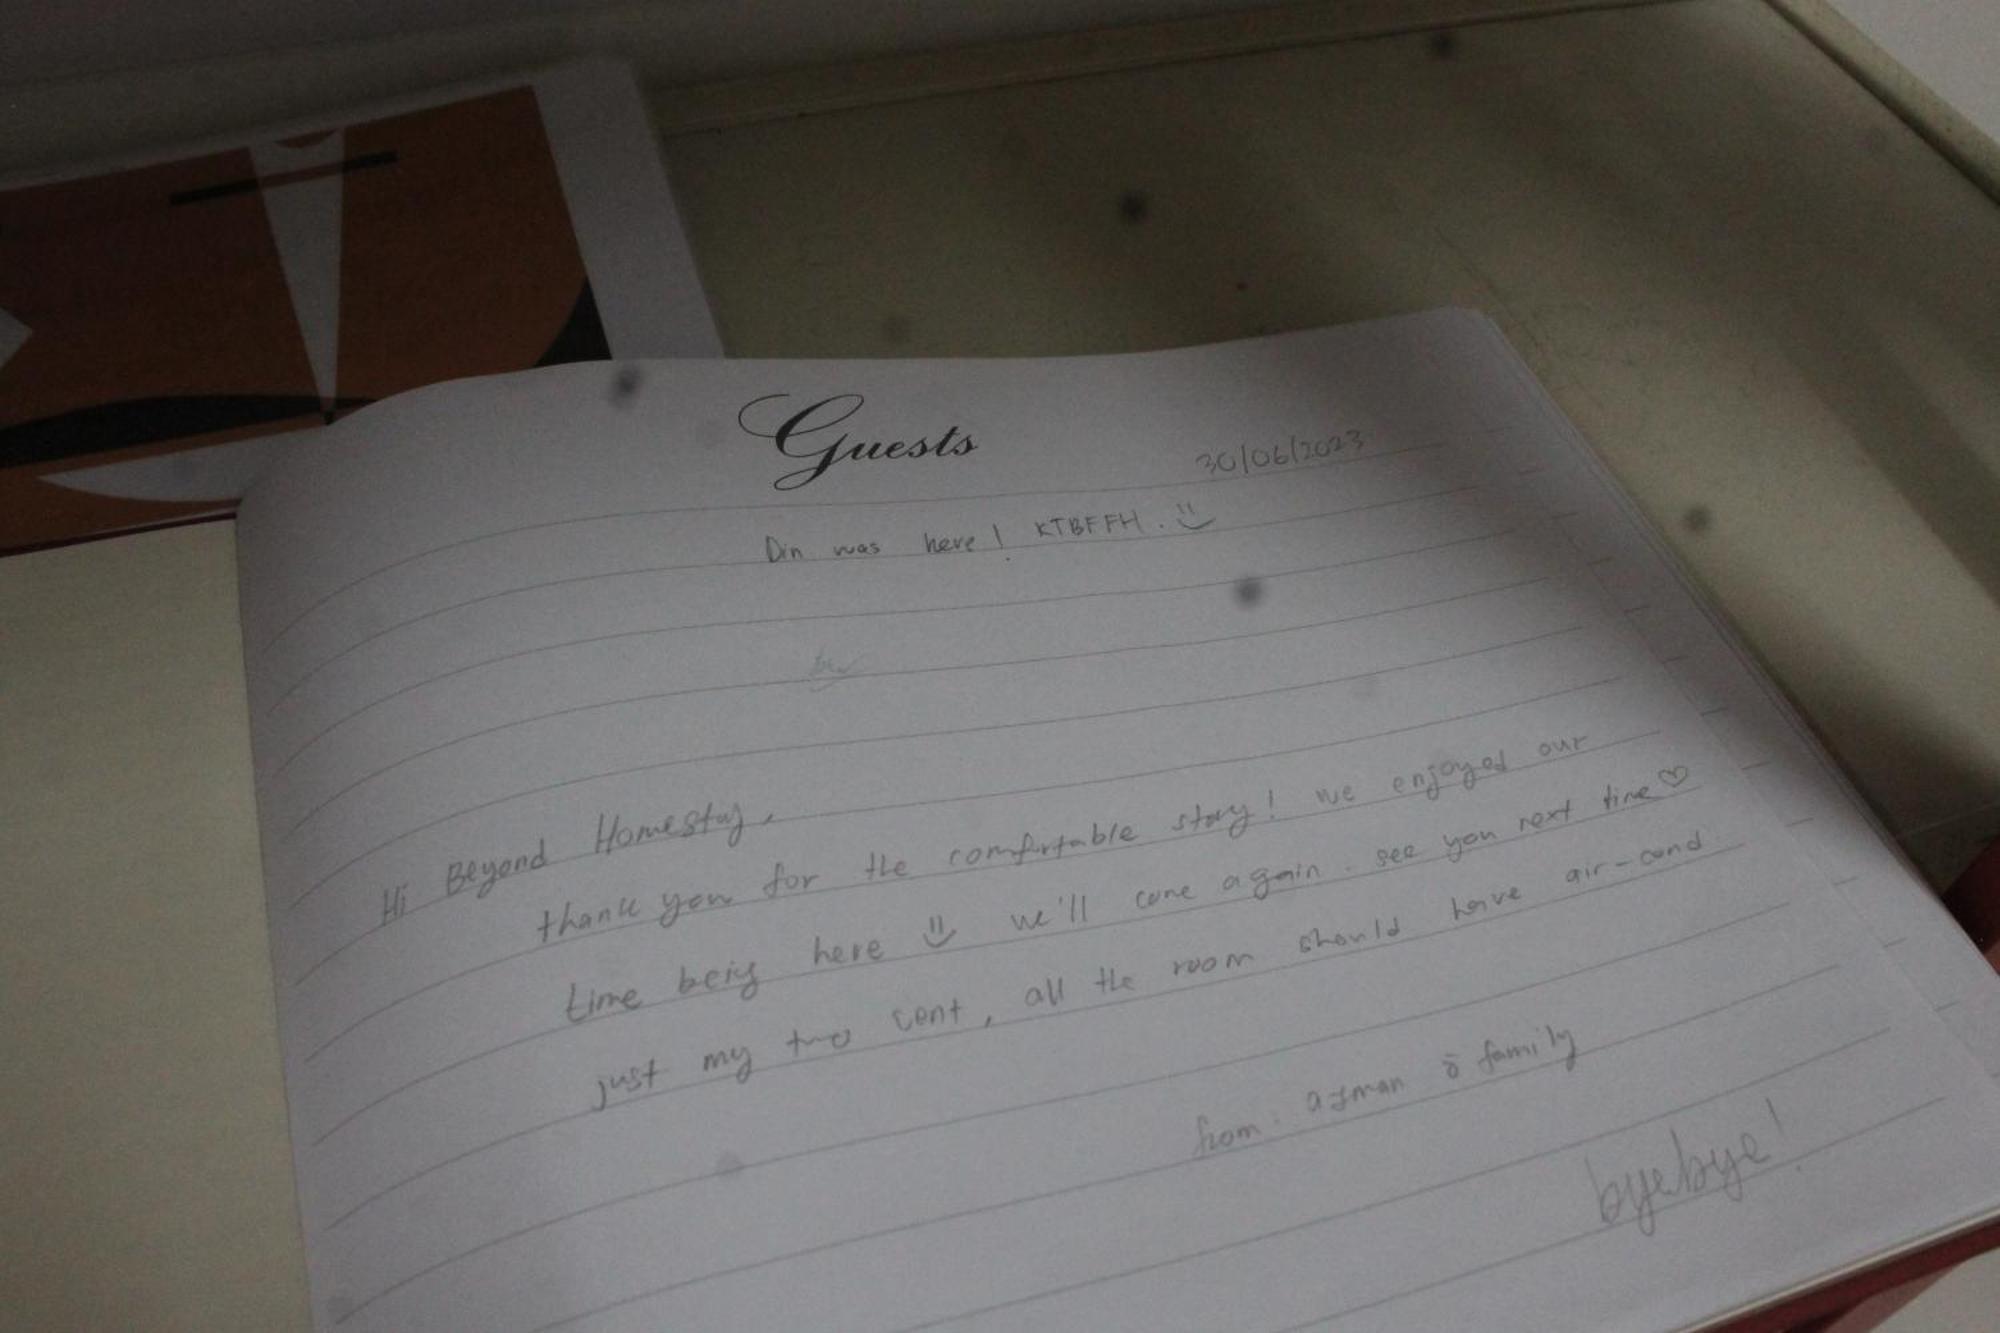 Guests
30/06/2023
Din was here! KTBFFH.
Hi Beyond Homestay,
thank you for the comfortable stay! we enjoyed our
time being here we'll come again. see you next time
just my two cent, all the room should have air-cond
from: & family
byebye!